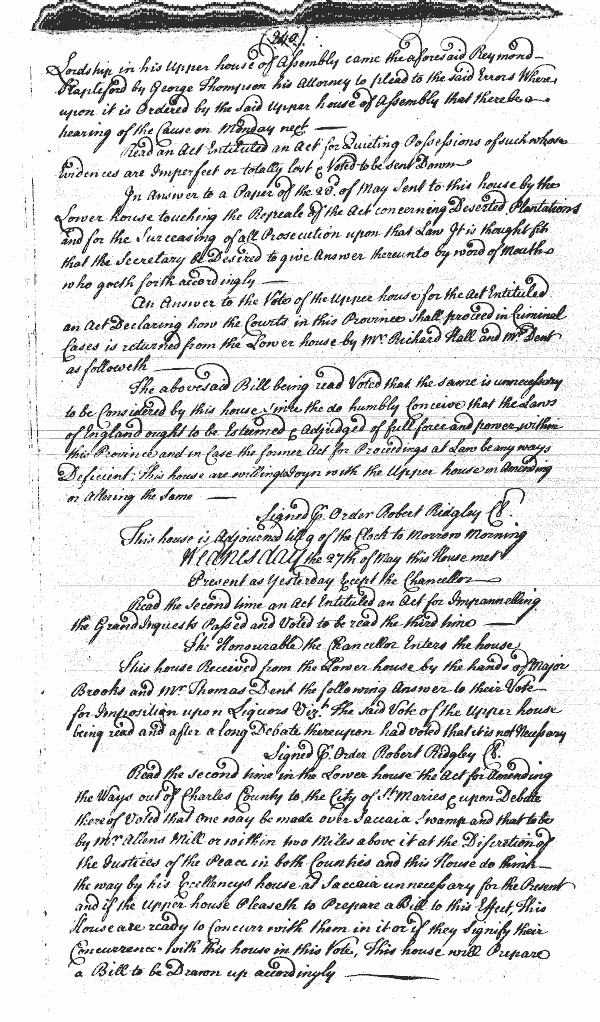 (240)
Lordship in his Upper house of Assembly came the aforesaid Reymond
Stapleford by George Thompson his Attorney to plead to the said Errors Where
upon it is Ordered by the said Upper house of Assembly that there be a
hearing of the Cause on Monday next —
Read an Act Entituled an Act for Quieting Possessions of such whose
Evidences are Imperfect or totally lost & Voted to be sent Down
In Answer to a Paper of the 23d. of May Sent to this house by the
Lower house touching the Repeale of the Act concerning Deserted Plantations
and for the Surceasing of all Prosecution upon that Law It is thought fitt
that the Secretary be Desired to give Answer thereunto by word of Mouth
who goeth forth accordingly —
An Answer to the Vote of the Upper house for the Act Entituled
an Act Declaring how the Courts in this Province shall proceed in Criminal
Cases is returned from the Lower house by Mr. Richard Hall and Mr. Dent
as followeth —
The abovesaid Bill being read Voted that the same is unnecessary
to be Considered by this house since the do humbly Conceive that the Laws
of England ought to be Esteemed & Adjudged of full force and power within
this Province and in Case the former Act for Proceedings at Law be any ways
Deficient; This house are willing to Joyn with the Upper house in Amending
or Altering the Same —
Signed P. Order Robert Ridgley Cl.
This house is Adjourned till 9 of the Clock to Morrow Morning
Wednesday the 27th of May this House met
Present as Yesterday Except the Chancellor
Read the Second time an Act Entituled an Act for Impannelling
the Grand Inquests Passed and Voted to be read the third time —
The Honourable the Chancellor Enters the house
This house Received from the Lower house by the hands of Major
Brooks and Mr. Thomas Dent the following Answer to their Vote
for Imposition upon Liquors Vizt. The said Vote of the Upper house
being read and after a long Debate thereupon had voted that it is not Necessary
Signed P. Order Robert Ridgley Cl.
Read the second time in the Lower house the Act for Amending
the Ways out of Charles County to the City of St. Maries & upon Debate
thereof Voted that One way be made over Jaccaia Swamp and that to be
by Mr. Allens Mill or within two Miles above it at the Discretion of
the Justices of the Peace in both Counties and this House do think
the way by his Excellencys house at Jaccaia unnecessary for the Present
and if the Upper house Pleaseth to Prepare a Bill to this Effect, This
House are ready to Concurr with them in it or if they Signify their
Concurrence with this house in this Vote, This house will Prepare
a Bill to be Drawn up accordingly —